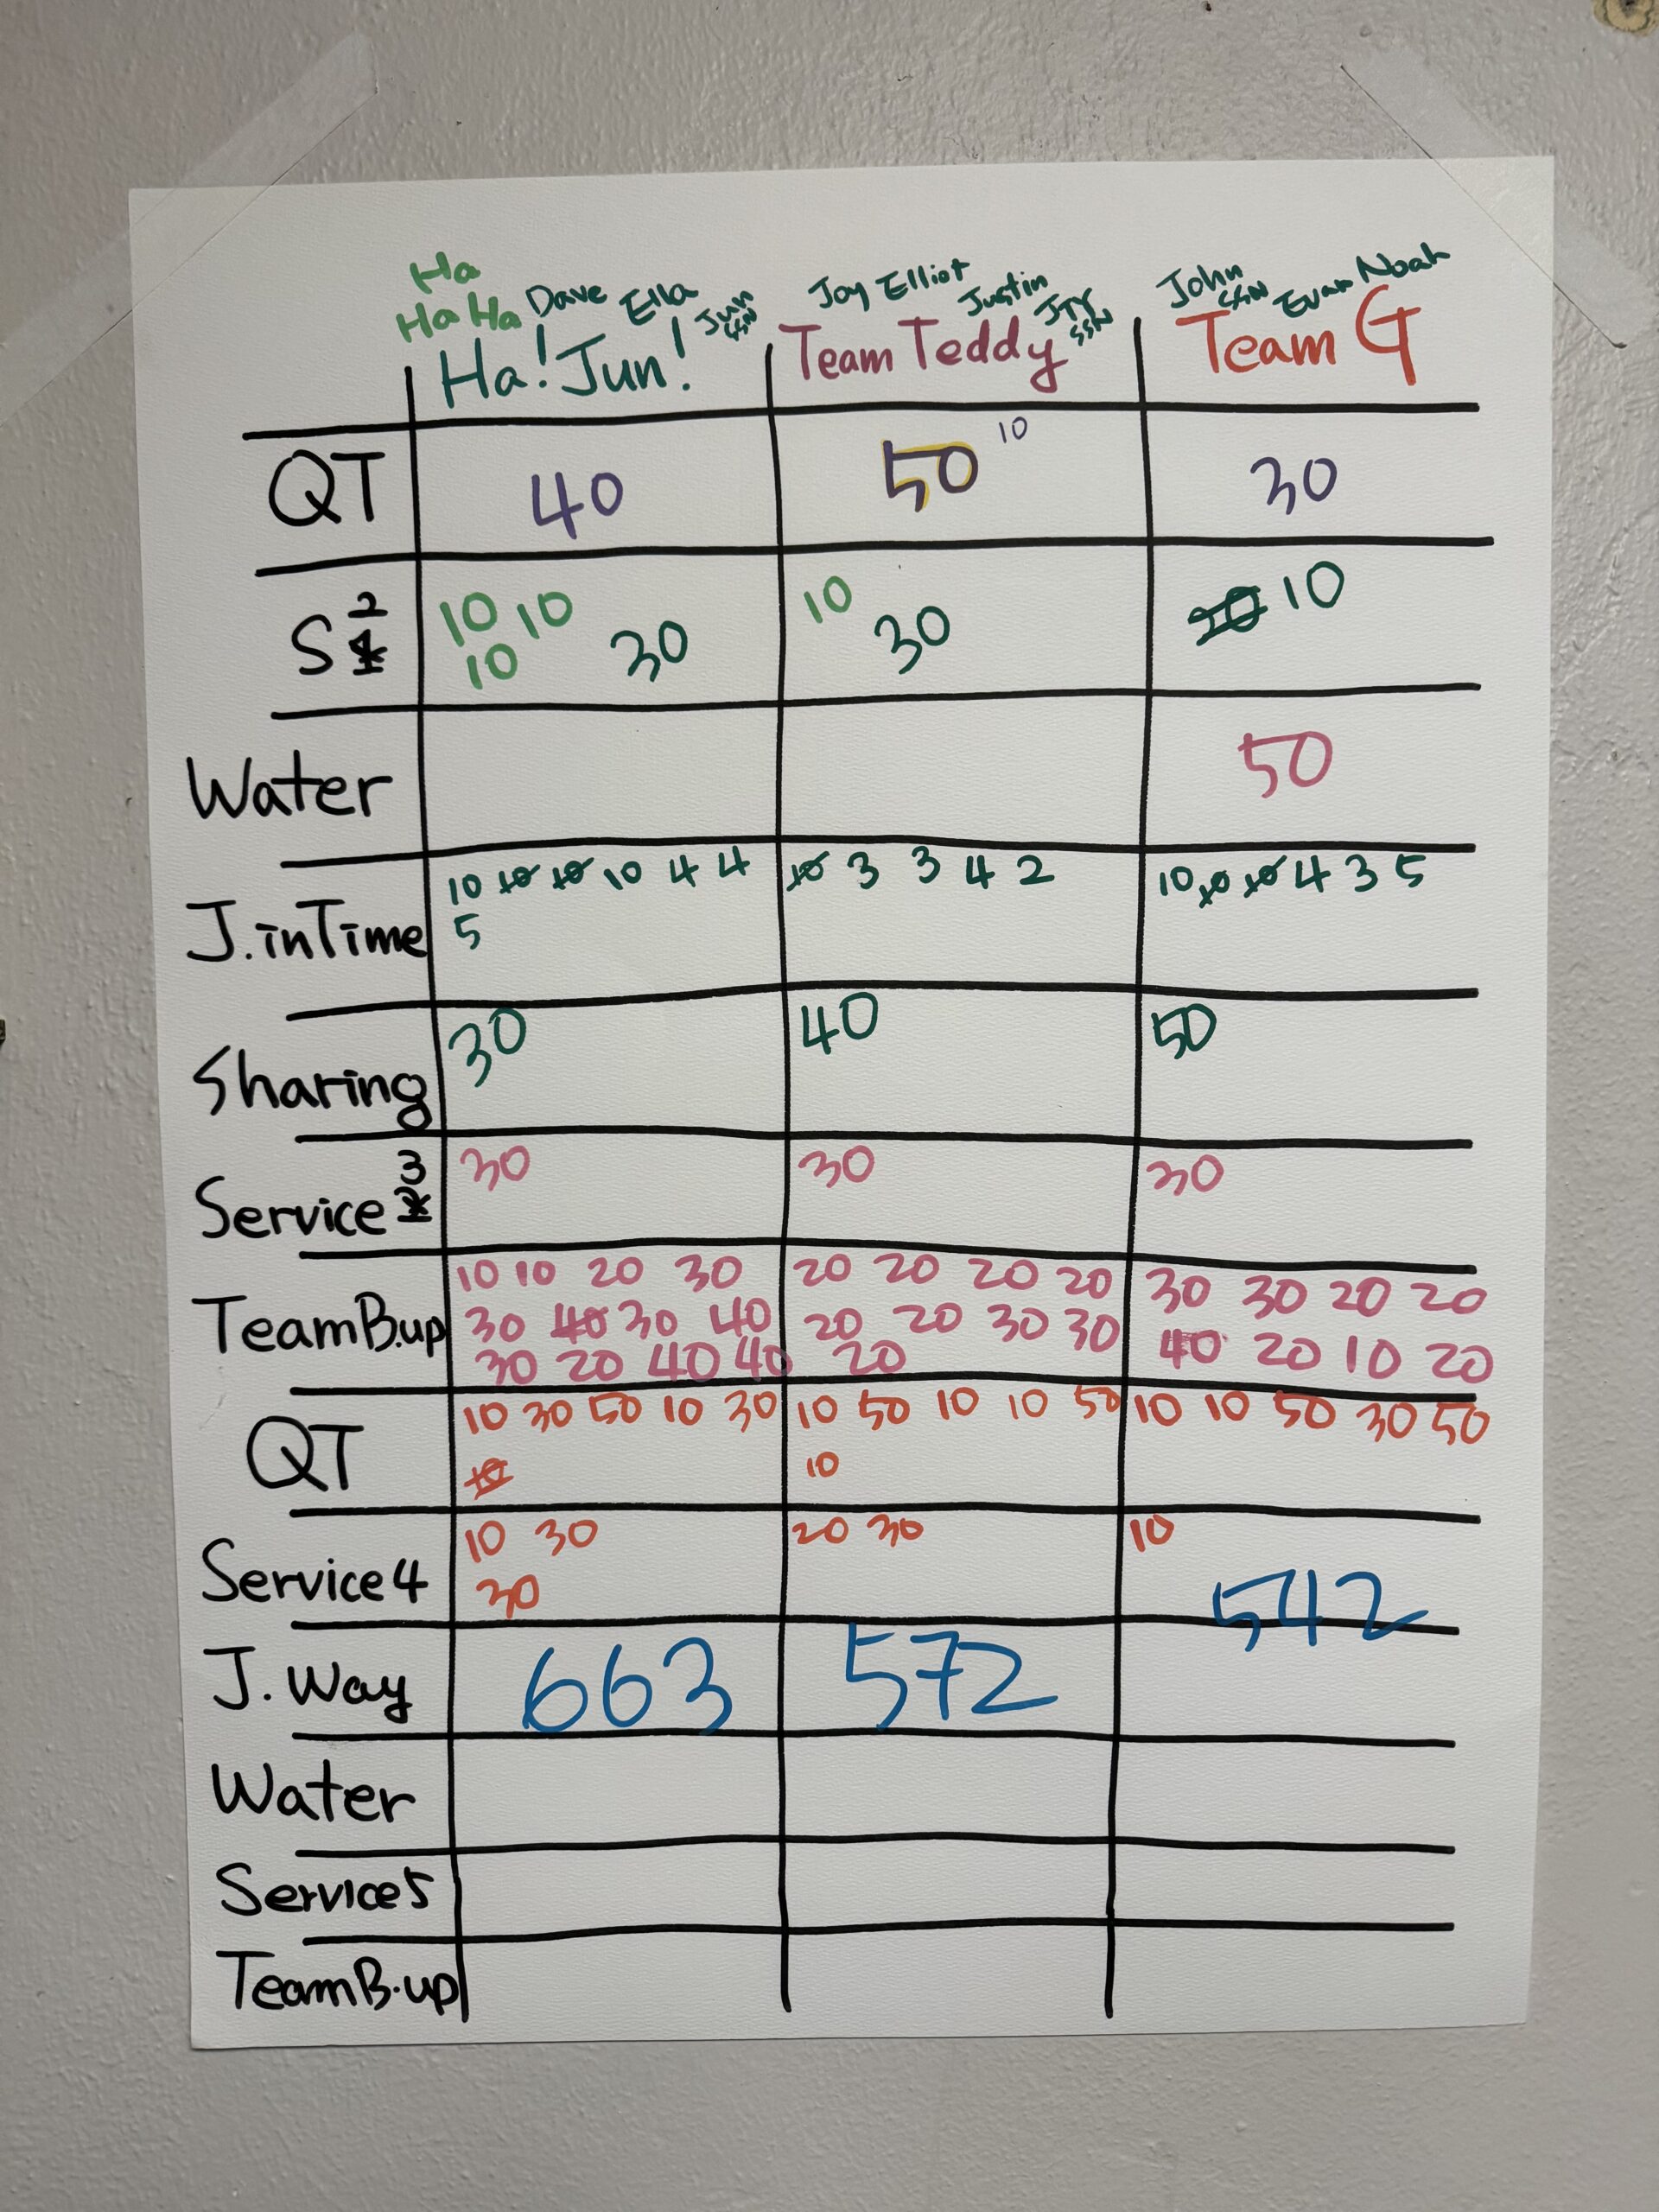 Ha
Ha Ha Dave Ella Jun SSN
Joy Elliot Justin JTY SSN
John SSN Evan Noah
Ha! Jun! Team Teddy Team G
QT 40 50 10 30
S 2 10 10 10 30 10 30 10
Water 50
J.inTime 10 10 10 10 4 4 10 3 3 4 2 10 10 10 4 3 5
5
Sharing 30 40 50
Service 3 30 30 30
TeamB.up 10 10 20 30 20 20 20 20 30 30 20 20
30 40 30 40 20 20 30 30 40 20 10 20
30 20 40 40 20
QT 10 30 50 10 30 10 50 10 10 50 10 10 50 30 50
10 10
Service4 10 30 20 30 10
30
542
J.Way 663 572
Water
Service5
TeamB.up